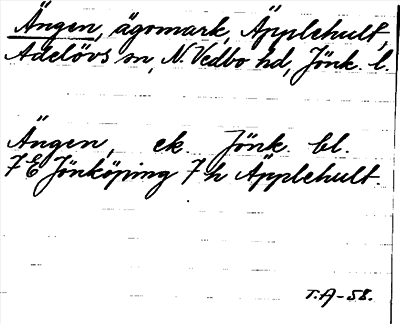 Ängen, ägomark, Äpplehult,
Adelövs sn, N. Vedbo hd, Jönk. l.
Ängen, ek. Jönk. bl.
7 E Jönköping 7 h Äpplehult.
T.A-58.